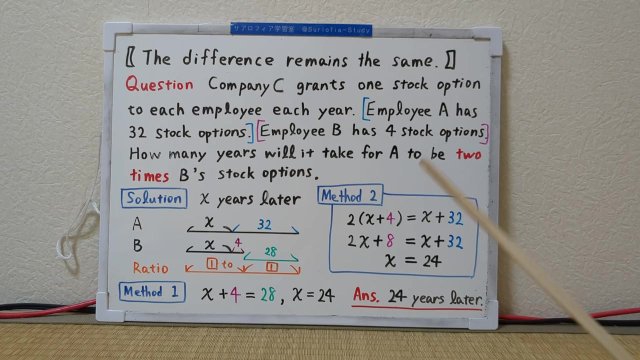 リアロフィア学習室 @Suriofia-Study
〖 The difference remains the same. 〗
Question Company C grants one stock option
to each employee each year. [Employee A has
32 stock options.] [Employee B has 4 stock options.]
How many years will it take for A to be two
times B's stock options.
Solution x years later
A x 32
B x 4
28
Ratio 1 to 1
Method 1 x + 4 = 28, x = 24
Method 2
2(x+4) = x + 32
2x + 8 = x + 32
x = 24
Ans. 24 years later.